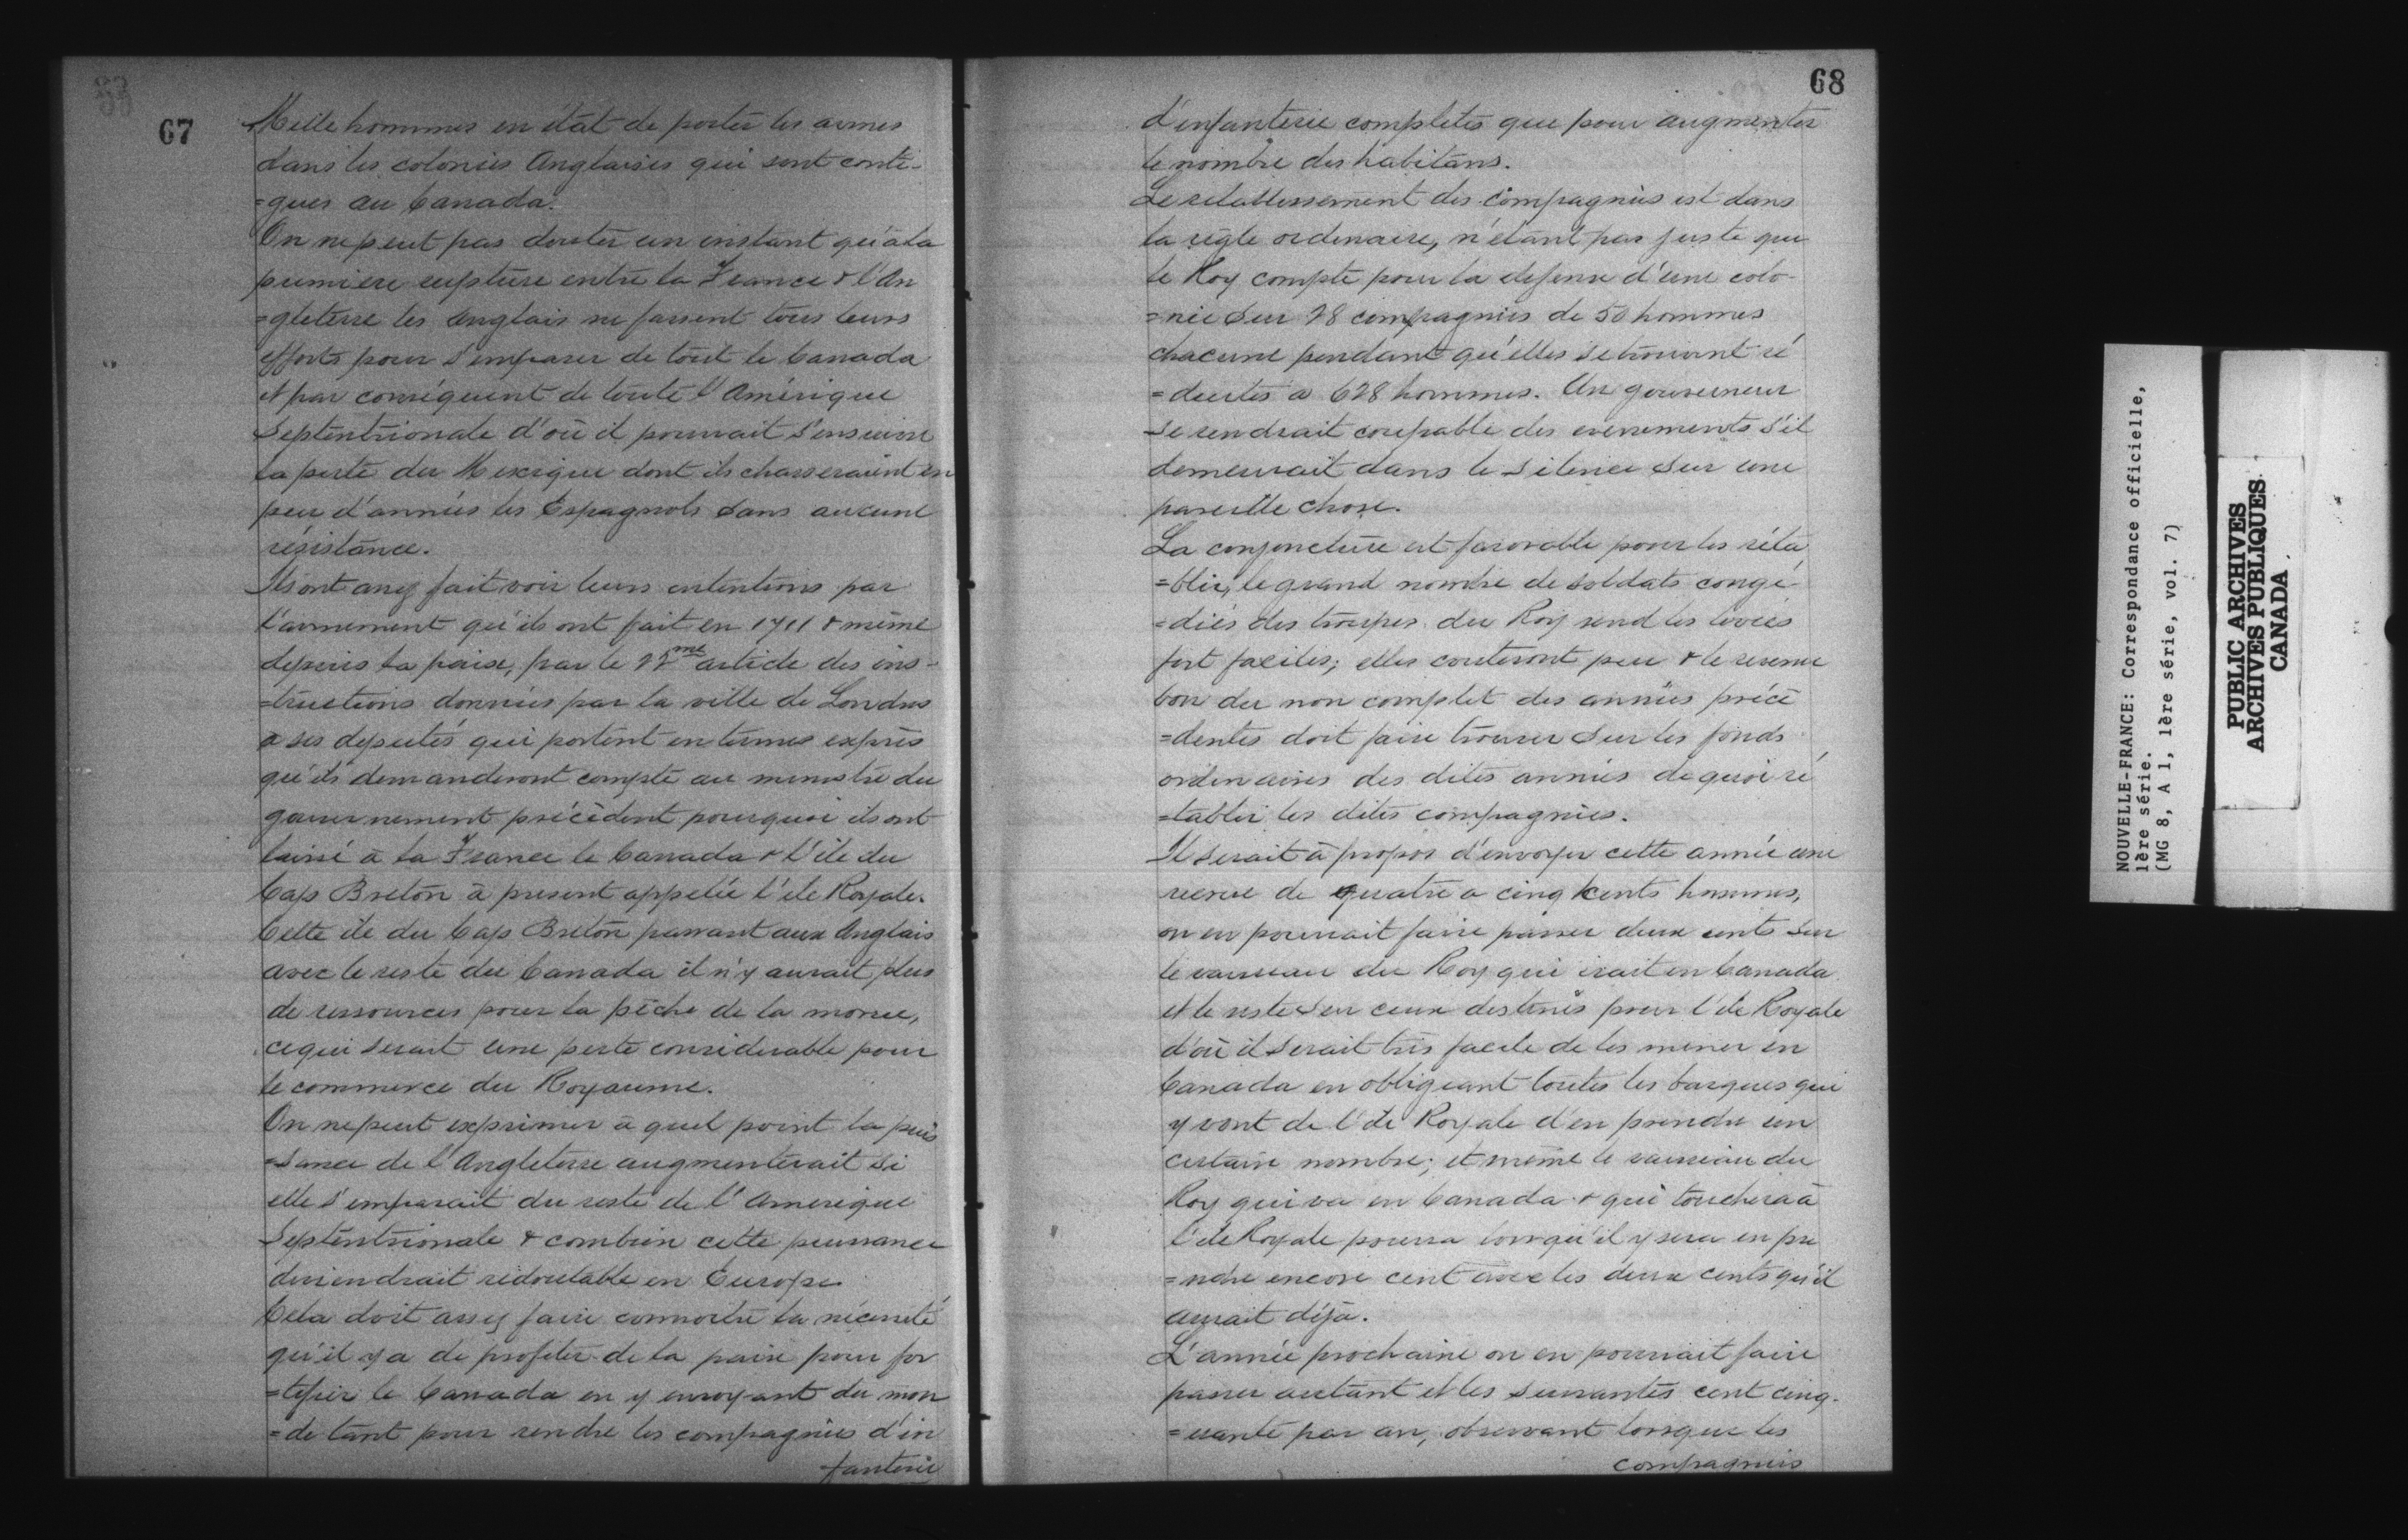 67
Mille hommes en état de porter les armes
dans les colonies Anglaises qui sont conti-
=gues au Canada.
On ne peut pas douter un instant qu'à la
premiere rupture entre la France & l'An
=gleterre les Anglais ne fassent tous leurs
efforts pour s'emparer de tout le Canada
et par conséquent de toute l'Amérique
Septentrionale d'où il pourrait s'ensuivre
la perte du Mexique dont ils chasseraient en
peu d'années les Espagnols sans aucune
résistance.
Ils ont assez fait voir leurs intentions par
l'armement qu'ils ont fait en 1711 & même
depuis la paix, par le article des ins-
=tructions données par la ville de Londres
a ses députés qui portent en termes exprès
qu'ils demanderont compte au ministre du
gouvernement précédent pourquoi ils ont
laissé à la France le Canada & l'île du
Cap Breton à present appelée l'ile Royale.
Cette île du Cap Breton passant aux Anglais
avec le reste du Canada il n'y aurait plus
de ressources pour la pêche de la morue,
ce qui serait une perte considerable pour
le commerce du Royaume.
On ne peut exprimer à quel point la puis
=sance de l'Angleterre augmenterait si
elle s'emparait du reste de l'Amerique
Septentrionale & combien cette puissance
deviendrait redoutable en Europe.
Cela doit assez faire connoitre la nécessité
qu'il y a de profiter de la paix pour for
=tifier le Canada en y envoyant du mon
=de tant pour rendre les compagnies d'in
fanterie
68
d'infanterie completes que pour augmenter
le nombre des habitans.
Le rétablissement des compagnies est dans
la règle ordinaire, n'étant pas juste que
le Roy compte pour la defense d'une colo-
=nie sur 28 compagnies de 50 hommes
chacune pendant qu'elles se trouvent ré
=duites a 628 hommes. Un gouverneur
se rendrait coupable des evenements s'il
demeurait dans le silence sur une
pareille chose.
La conjoncture est favorable pour les réta
=blir, le grand nombre de soldats congé-
=diés des troupes du Roy rend les levées
fort faciles; elles couteront peu & le revenu
bon du non complet des années précé
=dentes doit faire trouver sur les fonds
ordinaires des dites années de quoi ré
=tablir les dites compagnies.
Il serait à propos d'envoyer cette année une
recrue de quatre a cinq cents hommes,
on en pourrait faire passer deux cents sur
le vaisseau du Roy qui irait en Canada
et le reste sur ceux destinés pour l'ile Royale
d'où il serait très facile de les mener en
Canada en obligeant toutes les barques qui
y vont de l'ile Royale d'en prendre un
certain nombre; et même le vaisseau du
Roy qui va en Canada & qui touchera à
l'ile Royale pourra lorsqu'il y sera en pre
=ndre encore cent avec les deux cents qu'il
aurait déjà.
L'année prochaine on en pourrait faire
passer autant et les suivantes cent cinq-
=uante par an, observant lorsque les
compagnies
NOUVELLE-FRANCE: Correspondance officielle,
1ère série.
(MG 8, A 1, 1ère série, vol. 7)
PUBLIC ARCHIVES
ARCHIVES PUBLIQUES
CANADA